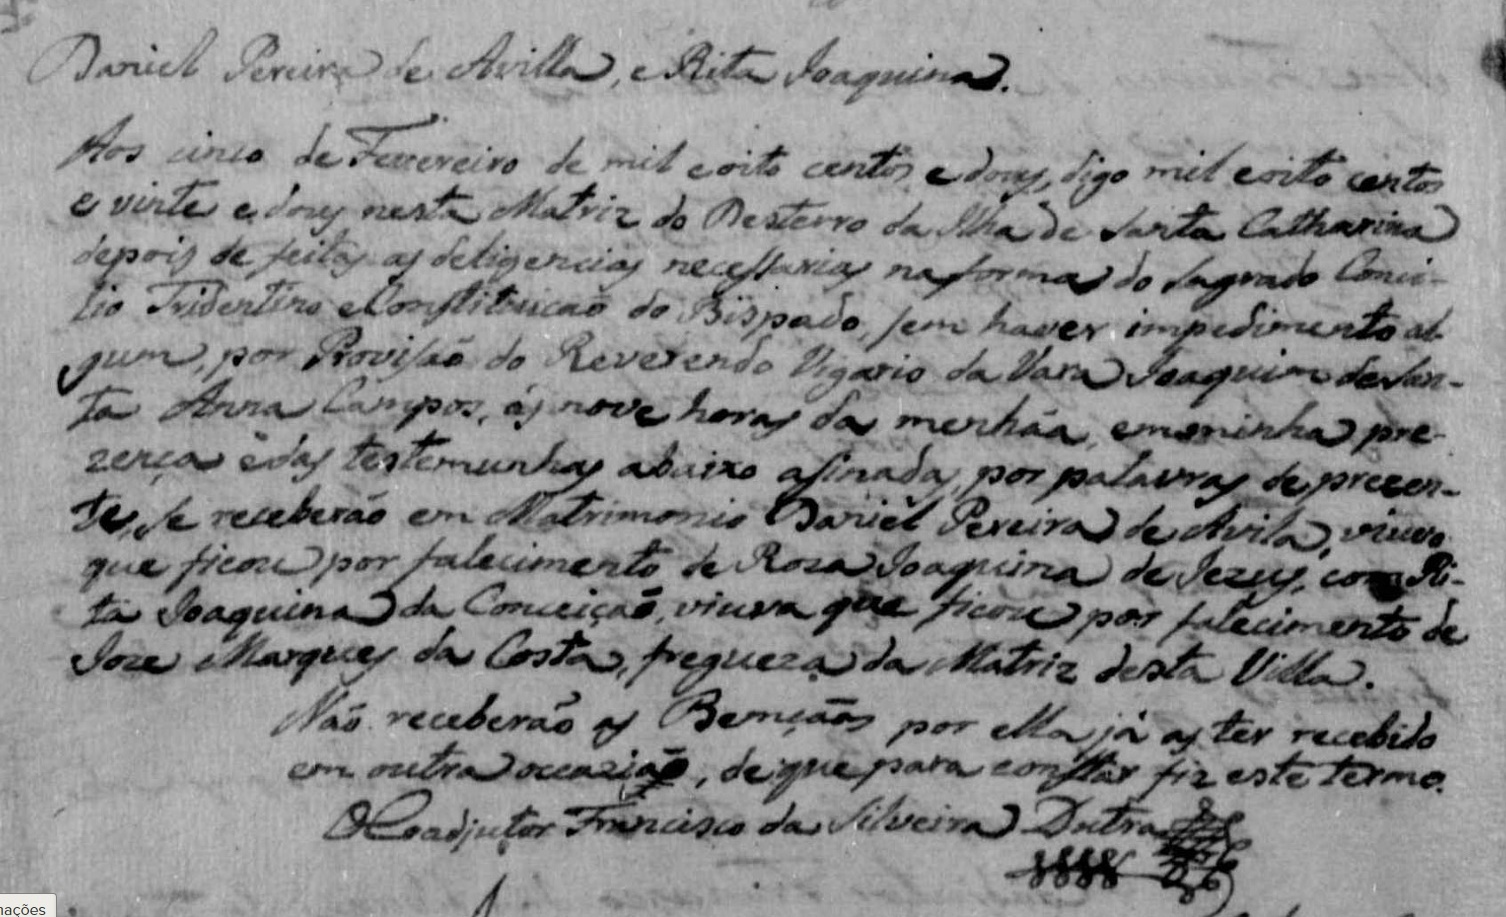 Daniel Pereira de Avilla, e Rita Joaquina.
Aos cinco de Fevereiro de mil e oito centos e dous, digo mil e oito centos
e vinte e dous nesta Matriz do Desterro da Ilha de Santa Catharina
depois de feitas as deligencias necessarias na forma do Sagrado Conci-
lio Tridentino e Constituicaõ do Bispado, sem haver impedimento al-
gum, por Provisaõ do Reverendo Vigario da Vara Joaquim de San-
ta Anna Campos, ás nove horas da menhãa, em minha pre-
zença e das testemunhas abaixo asinadas, por palavras de prezen-
te, se receberão em Matrimonio Daniel Pereira de Avila, viuvo
que ficou por falecimento de Roza Joaquina de Jezus, com Ri-
ta Joaquina da Conceiçaõ, viuva que ficou por falecimento de
Joze Marques da Costa, fregueza da Matriz desta Villa.
Não receberão as Bemçãos por ella já as ter recebido
em outra occazião, de que para constar fiz este termo.
O Coadjutor Francisco da Silveira Dutra
nações